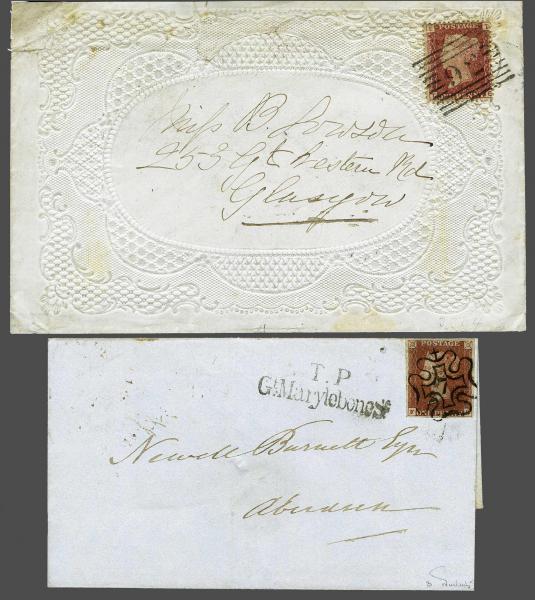 POSTAGE
Miss B. Lowson
253 Gt Western Rd
Glasgow
POSTAGE
T. P
Gt Marylebone St
Newell Burnett Esqr
Aberdeen